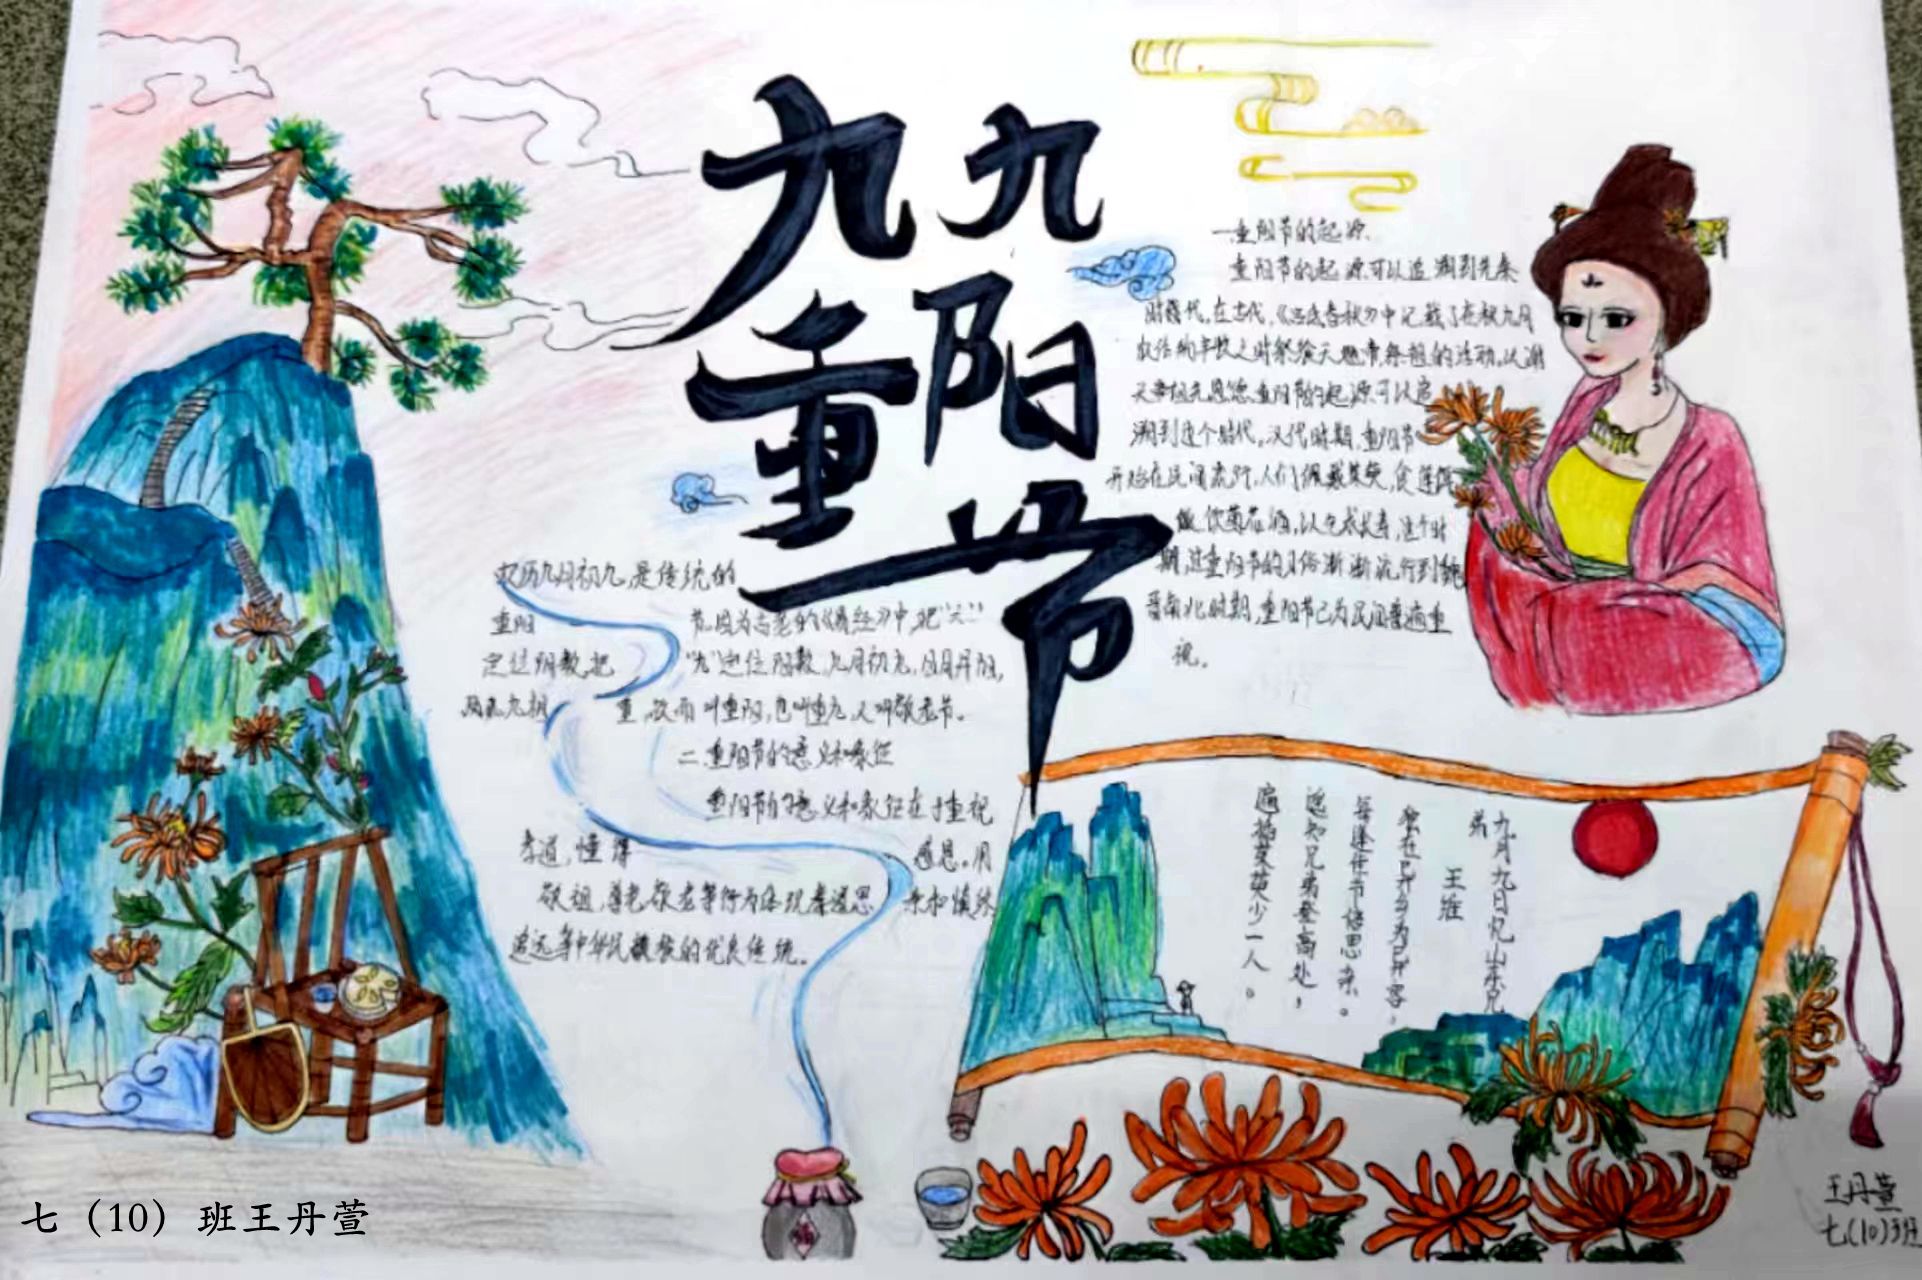 九九
重阳
节
一.重阳节的起源.
重阳节的起源可以追溯到先秦
时期代,在古代,《吕氏春秋》中记载了在秋九月
农作物丰收之时祭飨天帝,祭祖的活动,以谢
天帝祖先恩德.重阳节的起源可以追
溯到这个时代,汉代时期,重阳节
开始在民间流行,人们佩戴茱萸,食蓬饵
饮菊花酒,以求长寿,这个时
期,过重阳节的习俗渐渐流行到魏
晋南北时期,重阳节已为民间普遍重
视。
农历九月初九,是传统的
重阳 节,因为古老的《易经》中,把"六"
定位阴数,把 "九"定位阳数,九月初九,日月并阳,
两九相 重,故而叫重阳,也叫重九,又叫敬老节。
二.重阳节的意义和象征
重阳节的意义和象征在于重视
孝道,懂得 感恩。用
敬祖,尊老敬老等行为体现孝道思 亲和慎终
追远等中华民族的优良传统。
九月九日忆山东兄
弟
王维
独在异乡为异客,
每逢佳节倍思亲。
遥知兄弟登高处,
遍插茱萸少一人。
王丹萱
七(10)班
七（10）班王丹萱